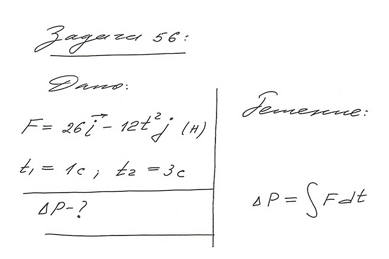 Задача 56:
Дано:
F = 26i⃗ - 12t²j (Н)
t₁ = 1c; t₂ = 3c
ΔP-?
Решение:
ΔP = ∫Fdt